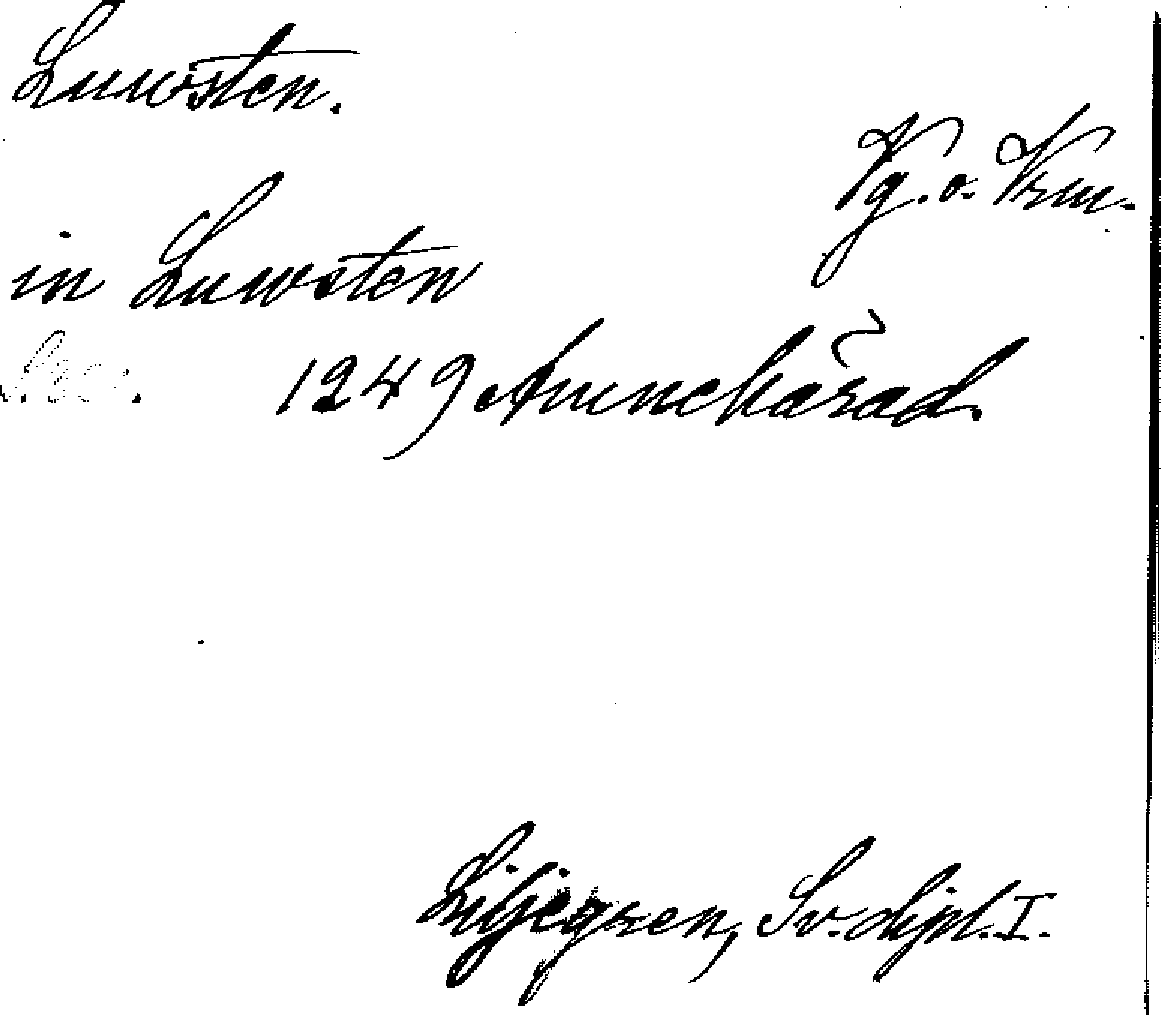 Luwsten.
Vg. o. Vrm.
in Luwsten
1249 Amnehärad.
Liljegren, Sv. dipl. I.